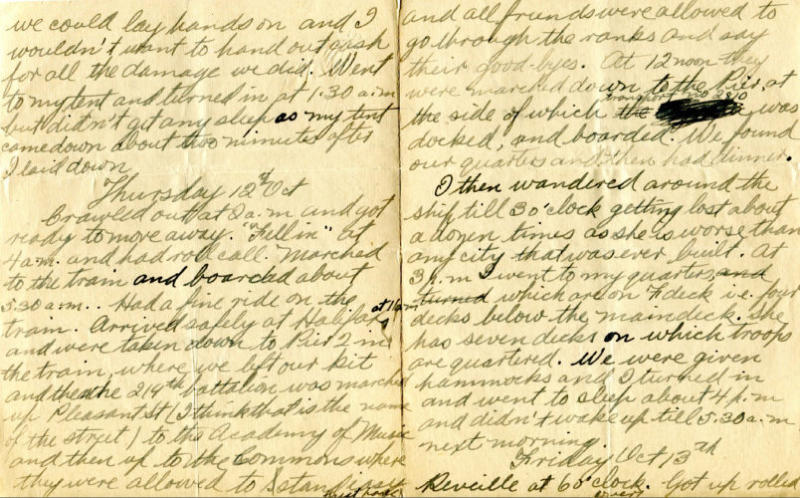 we could lay hands on and I
wouldn't want to hand out cash
for all the damage we did. Went
to my tent and turned in at 1.30 a.m
but didn't get any sleep as my tent
came down about two minutes after
I laid down
Thursday 12th Oct
Crawled out at 2 a.m and got
ready to move away. "Fell in" at
4 a.m. and had roll call. Marched
to the train and boarded about
5.30 a.m.. Had a fine ride on the
train. Arrived safely at Halifax at 11 a.m
and were taken down to Pier 2 in
the train, where we left our kit
and then the 219th battalion was marched
up Pleasant St (I think that is the name
of the street) to the Academy of Music
and then up to the Commons where
they were allowed to stand easy
and all friends were allowed to
go through the ranks and say
their good-byes. At 12 noon they
were marched down to the Pier, at
the side of which the was
docked, and boarded. We found
our quarters and then had dinner.
I then wandered around the
ship till 3 o'clock getting lost about
a dozen times as she is worse than
any city that was ever built. At
3 p.m I went to my quarters, and
turned which are on F deck i.e. four
decks below the main deck. She
has seven decks on which troops
are quartered. We were given
hammocks and I turned in
and went to sleep about 4 p.m
and didn't wake up till 5.30 a.m
next morning.
Friday Oct 13th
Reveille at 6 o'clock. Got up rolled